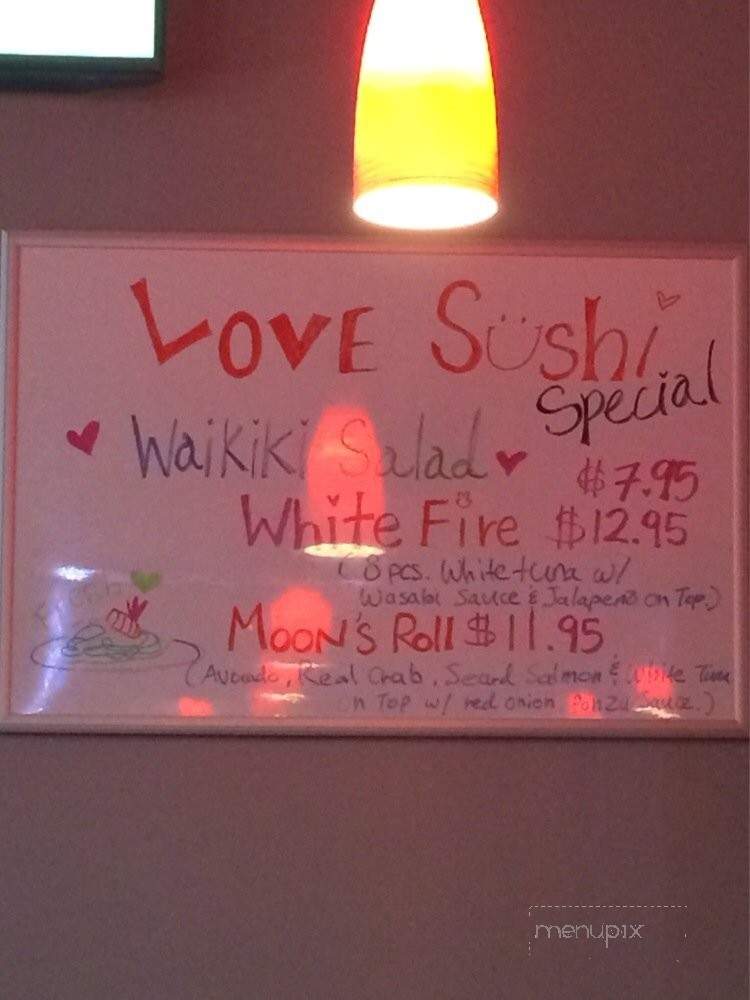 LOVE Süshi
Special
Waikiki Salad $7.95
White Fire $12.95
(8 pcs. White tuna w/
Wasabi Sauce & Jalapeno on Top.)
Moon's Roll $11.95
(Avocado, Real Crab, Seard Salmon & White Tuna
on Top w/ red onion Ponzu Sauce.)
menupix